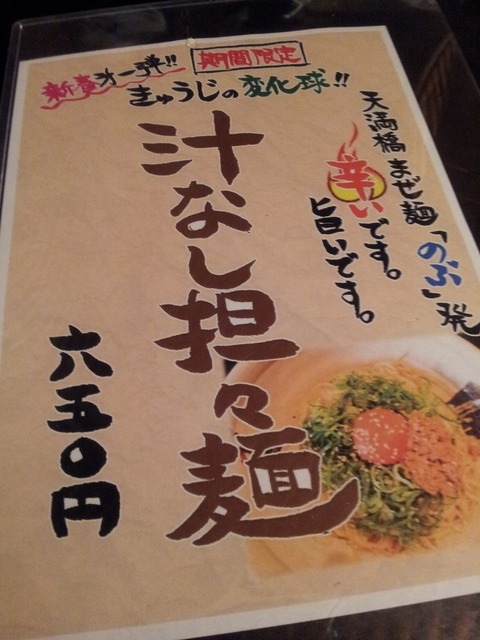 新春オ一弾!!
期間限定
きゅうじの変化球!!
天満橋まぜ麺「のぶ」発
辛いです。
旨いです。
汁なし担々麺
六五〇円